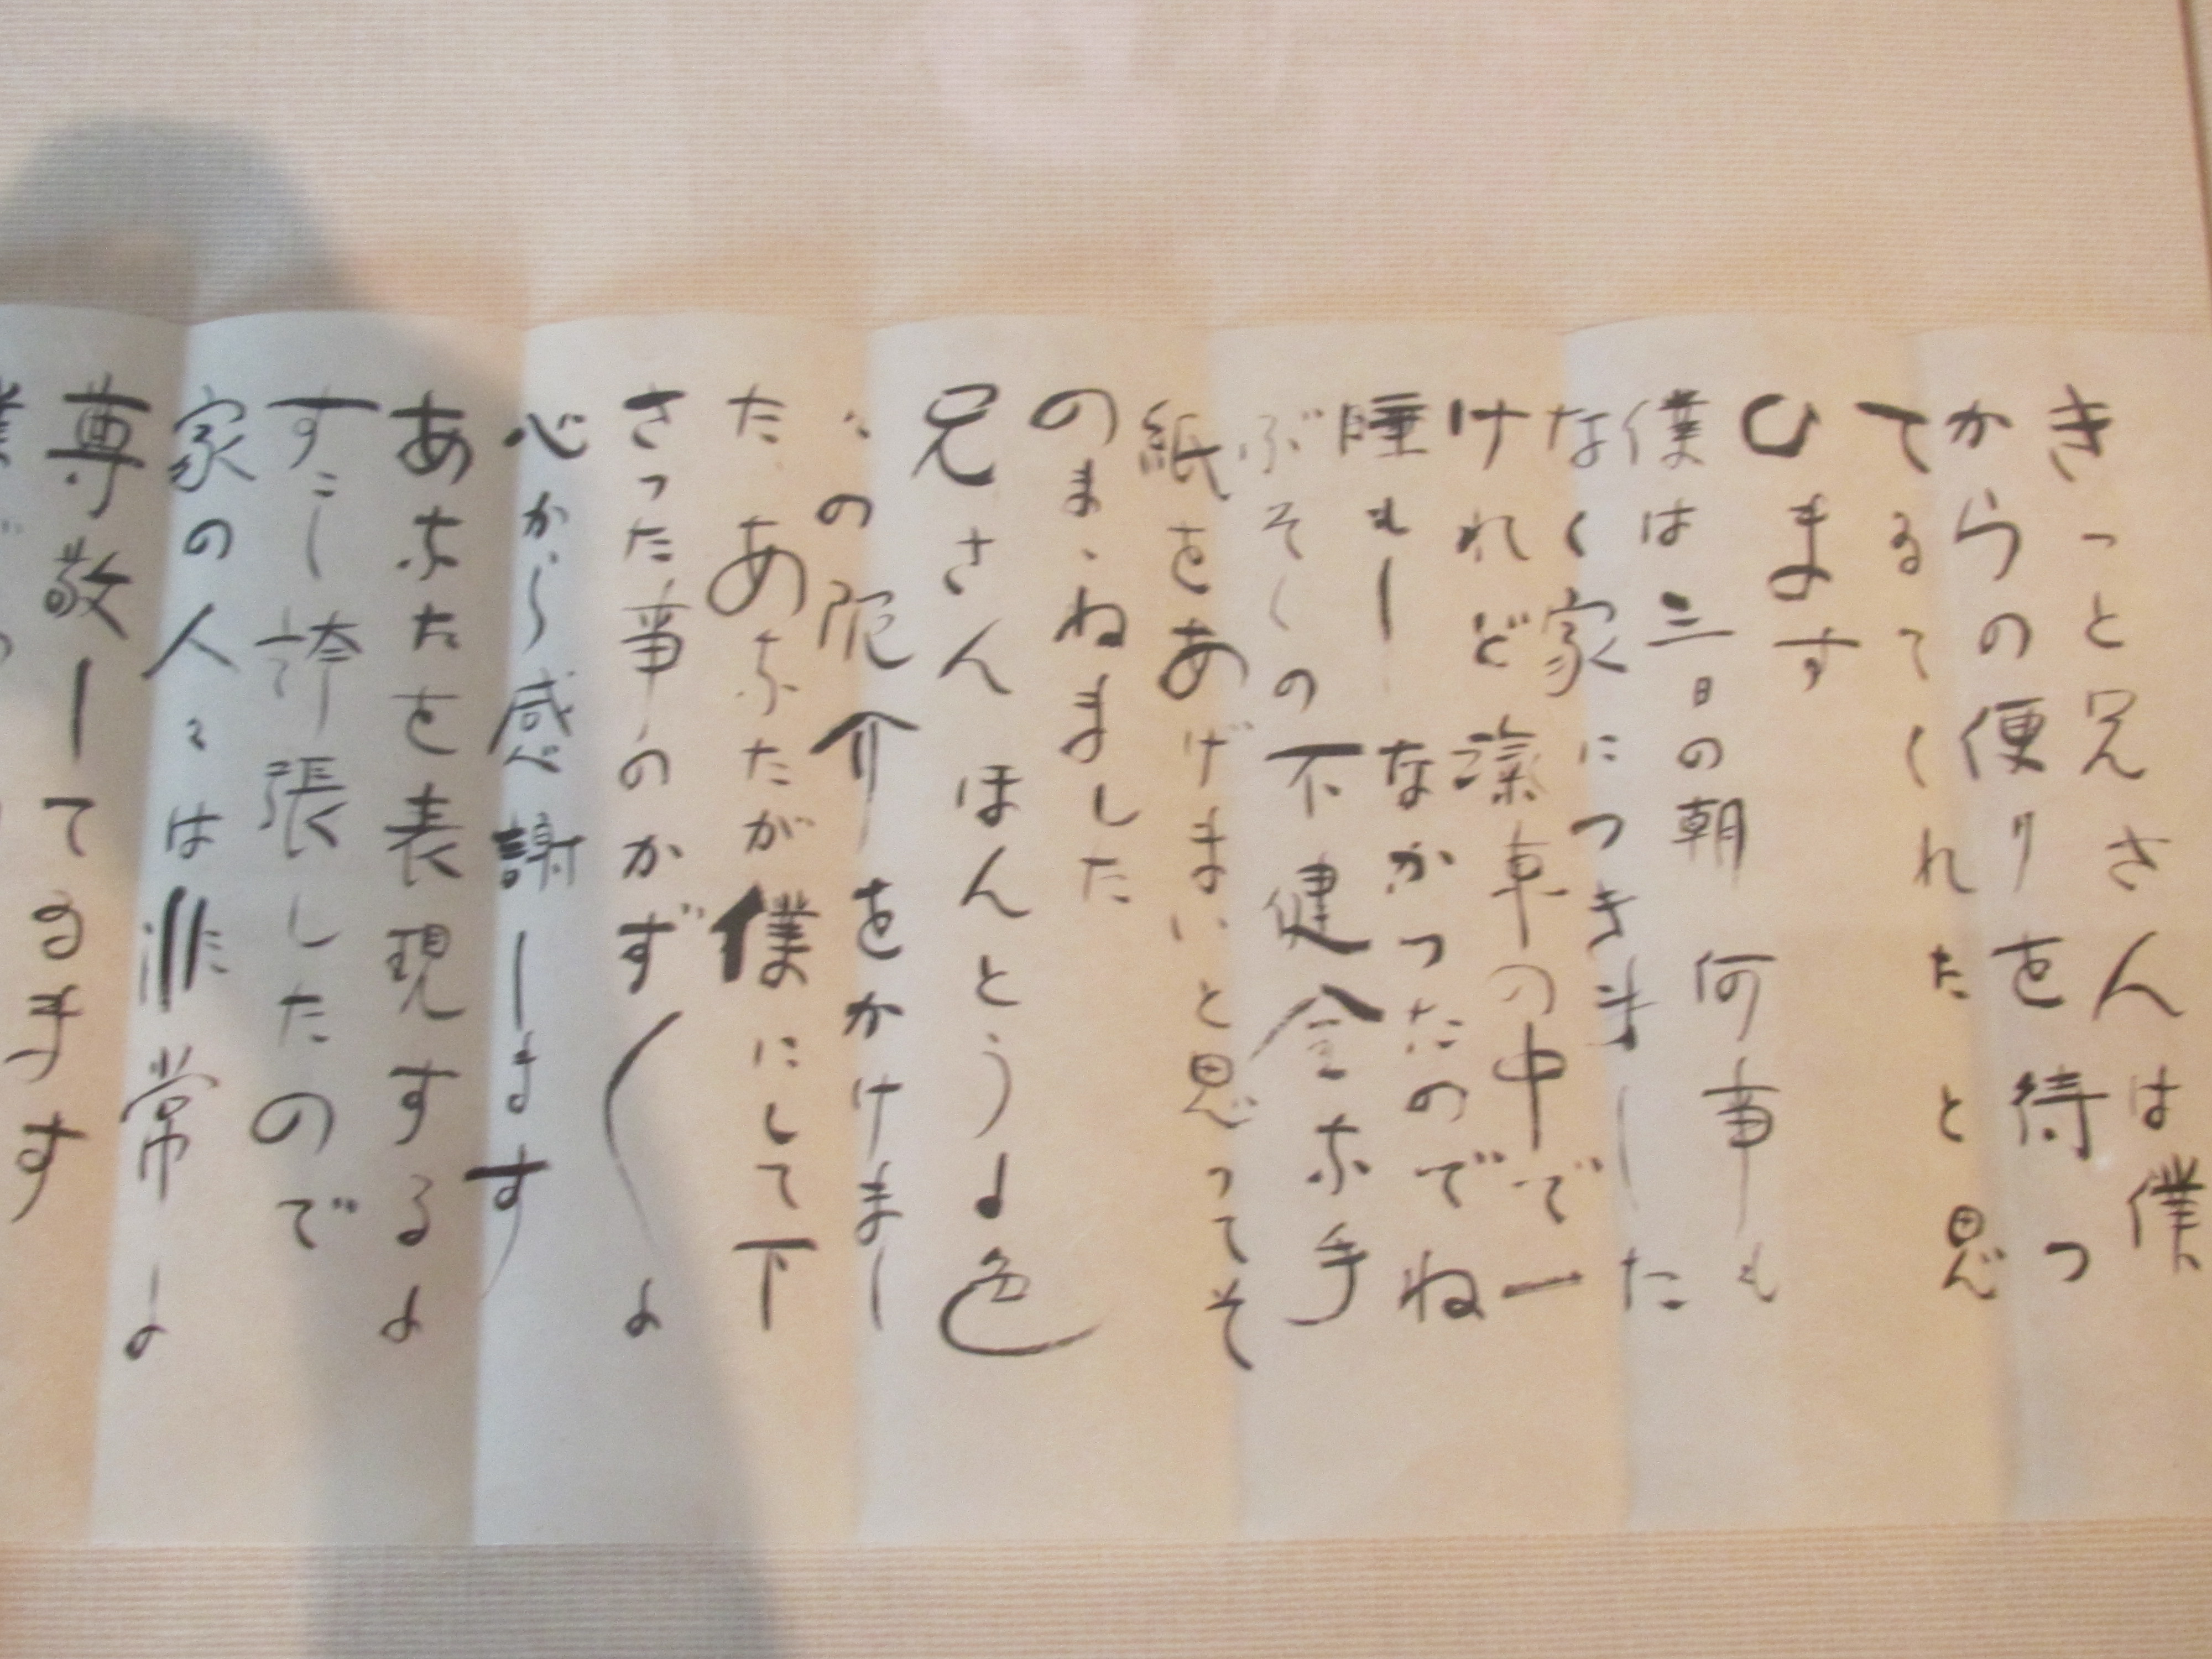 きっと兄さんは僕
からの便りを待つ
てゐてくれたと思
ひます
僕は三日の朝何事も
なく家につきました
けれど滊車の中で一
睡もしなかったのでね
ぶそくの不健全な手
紙をあげまいと思ってそ
のまゝねました
兄さんほんとうに色
々の厄介をかけまし
た あなたが僕にして下
さった事のかず〱に
心から感謝します
あなたを表現するに
すこし誇張したので
家の人々は非常に
尊敬してゐます